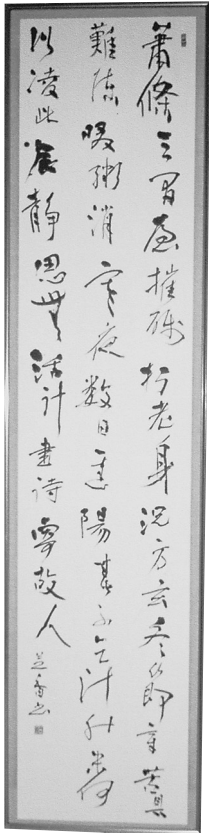 蕭條三間屋摧残朽老身況方玄冬節辛苦具
難陳啜粥消寒夜数日遅陽春不乞斗升米何
以凌此辰静思無活計書詩寄故人